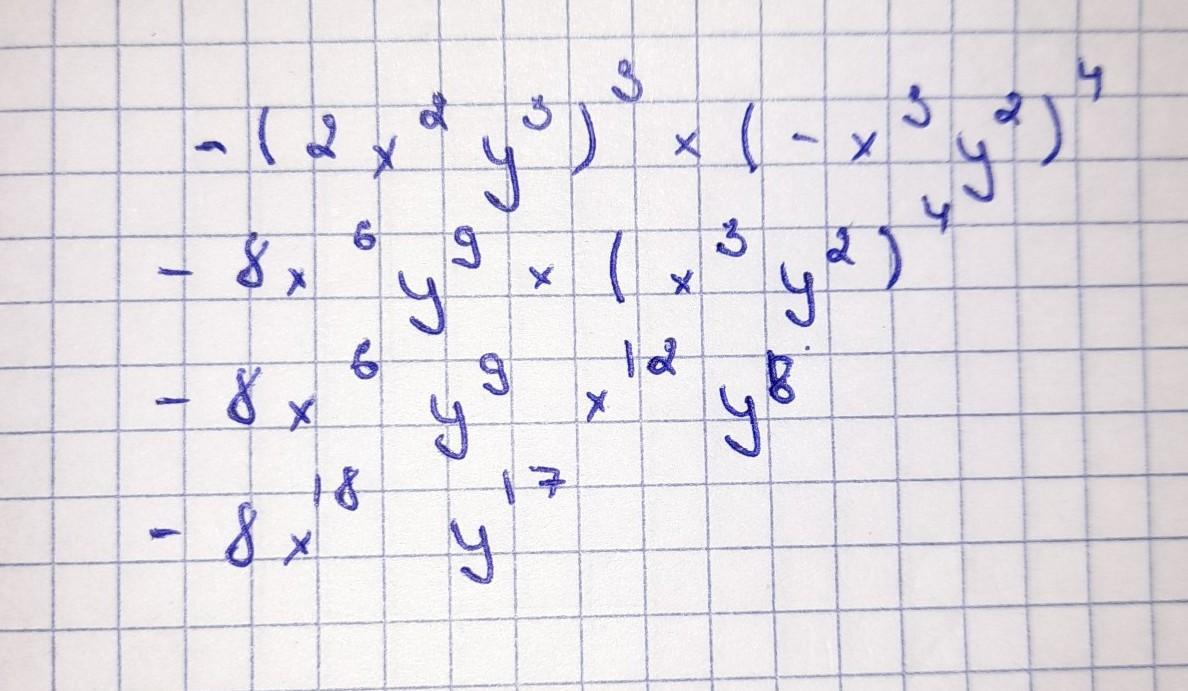 - (2x²y³)³ × (-x³y²)⁴
- 8x⁶y⁹ × (x³y²)⁴
- 8x⁶y⁹x¹²y⁸
- 8x¹⁸y¹⁷